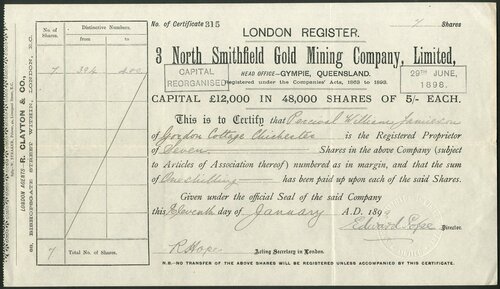 No. of Certificate 315
7 Shares
LONDON REGISTER.
3 North Smithfield Gold Mining Company, Limited,
HEAD OFFICE—GYMPIE, QUEENSLAND.
Registered under the Companies' Acts, 1863 to 1893.
CAPITAL
REORGANISED
29TH JUNE,
1898.
CAPITAL £12,000 IN 48,000 SHARES OF 5/- EACH.
This is to Certify that Percival William Jamieson
of Gordon Cottage Chichester is the Registered Proprietor
of Seven Shares in the above Company (subject
to Articles of Association thereof) numbered as in margin, and that the sum
of One shilling has been paid up upon each of the said Shares.
Given under the official Seal of the said Company
this Eleventh day of January A.D. 1899
Edward Pope
Director.
R Hope
Acting Secretary in London.
N.B.—NO TRANSFER OF THE ABOVE SHARES WILL BE REGISTERED UNLESS ACCOMPANIED BY THIS CERTIFICATE.
No. of
Shares.
Distinctive Numbers.
from
to
7 394 400
7 Total No. of Shares.
LONDON AGENTS—R. CLAYTON & CO.,
BISHOPSGATE STREET WITHIN, LONDON, E.C.